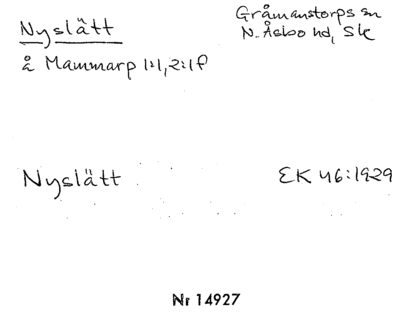 Nyslätt
Gråmanstorps sn
N. Åsbo hd, Sk
å Mammarp 1:1, 2:1 f
Nyslätt
EK 46:1929
Nr 14927